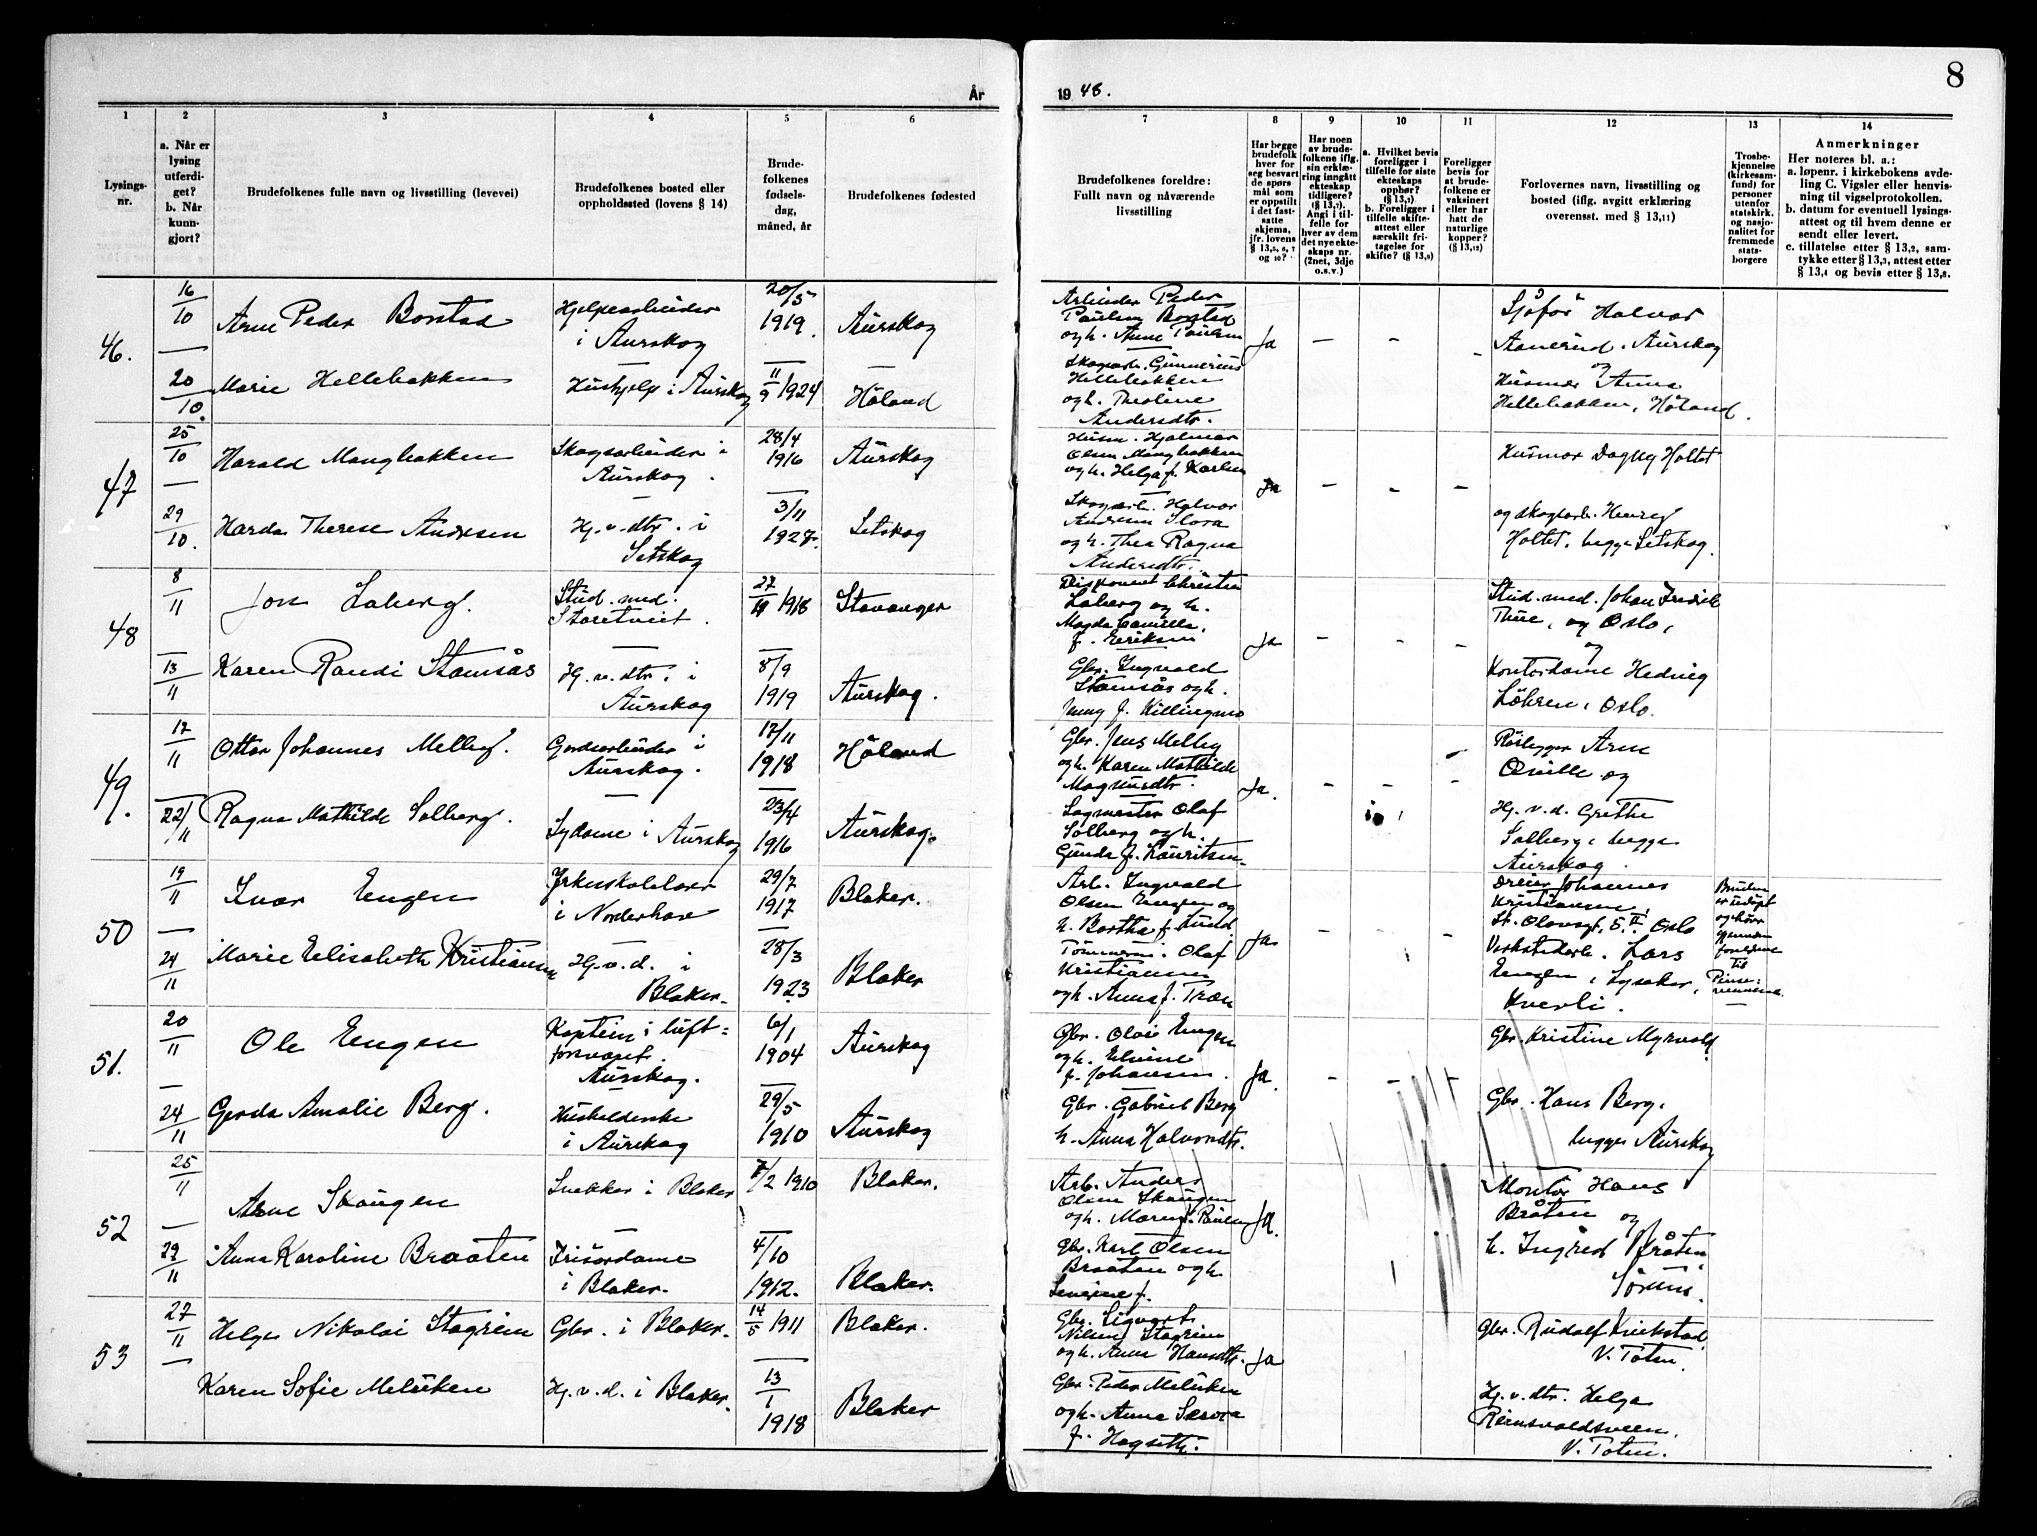 8
År
19 48.
1
2
3
4
5
6
7
8
9
10
11
12
13
14
Lysings-
nr.
a. Når er
lysing
utferdi-
get?
b. Når
kunn-
gjort?
Brudefolkenes fulle navn og livsstilling (levevei)
Brudefolkenes bosted eller
oppholdssted (lovens § 14)
Brude-
folkenes
fødsels-
dag,
måned, år
Brudefolkenes fødested
Brudefolkenes foreldre:
Fullt navn og nåværende
livsstilling
Har begge
brudefolk
hver for
seg besvart
de spørs
mål som
er oppstilt
i det fast-
satte
skjema,
jfr. lovens
§ 13,5, 6, 7
og 10?
Har noen
av brude-
folkene iflg.
sin erklæ-
ring inngått
ekteskap
tidligere?
(§ 13,7).
Angi i til-
felle for
hver av dem
det nye ekte-
skaps nr.
(2net, 3dje
o.s.v.)
a. Hvilket bevis
foreligger i
tilfelle for siste
ekteskaps
opphør?
(§ 13,7)
b. Foreligger i
tilfelle skifte-
attest eller
særskilt fri-
tagelse for
skifte? (§ 13,9)
Foreligger
bevis for
at brude-
folkene er
vaksinert
eller har
hatt de
naturlige
kopper?
(§ 13,12)
Forlovernes navn, livsstilling og
bosted (iflg. avgitt erklæring
overensst. med § 13,11)
Trosbe-
kjennelse
(kirkesam-
fund) for
personer
utenfor
statskirk.
og nasjo-
nalitet for
fremmede
stats-
borgere
Anmerkninger
Her noteres bl. a.:
a. løpenr. i kirkebokens avde-
ling C. Vigsler eller henvis-
ning til vigselprotokollen.
b. datum for eventuell lysings-
attest og til hvem denne er
sendt eller levert.
c. tillatelse etter § 13,2, sam-
tykke etter § 13,3, attest etter
§ 13,4 og bevis etter § 13,8.
46.
16/10
20/10.
Arne Peder Borstad
Hjelpearbeider
i Aurskog
20/5
1919.
Aurskog
Arbeider Peder
Paulsen Borstad
og h. Anne Paulsen
Ja
Sjåfør Halvor
Aanerud. Aurskog
og
Marie Hellebakken
Hushjelp i Aurskog
11/9 1924
Høland
Skogsarb. Gunnerius
Hellebakken
og h. Theoline
Andersdtr.
Husmor Anna
Hellebakken, Høland.
47
25/10
29/10.
Harald Mangbakken
Skogsarbeider i
Aurskog.
28/4
1916
Aurskog
Husm. Hjalmar
Olsen Mangbakken
og h. Helga f. Karlsen
Ja
Husmor Dagny Holtet
Harda Therese Andresen
Hj. v. dtr. i
Setskog
3/11
1927.
Setskog
Skogsarb. Halvor
Andresen Flora
og h. Thea Ragna
Andersdtr.
og skogsarb. Henry
Holtet, begge Setskog.
48
8/11
13/11
Jon Laberg.
Stud. med.
Storetveit.
27/11 1918
Stavanger
Disponent Christen
Laberg og h.
Magda Camilla,
f. Eriksen
Ja
Stud. med. Johan Fredrik
Thue, og Oslo,
og
Karen Randi Stamsås
Hj. v. dtr. i
Aurskog
8/9
1919
Aurskog.
Gbr. Ingvald
Stamsås og h.
Jenny f. Killingmo
Kontordame Hedvig
Løkren, Oslo.
49.
17/11
22/11
Ottar Johannes Melby.
Gardsarbeider i
Aurskog.
17/11
1918
Høland
Gbr. Jens Melby
og h. Karen Mathilde
Magnusdtr.
Ja.
Rørlegger Arne
Qville og
Ragna Mathilde Solberg.
Sydame i Aurskog
23/4
1916
Aurskog.
Sagmester Olaf
Solberg og h.
Gunda f. Lauritsen
Hj. v. d. Grethe
Solberg, begge
Aurskog.
50
19/11
24/11
Ivar Engen
Yrkesskolelærer
i Norderhov
29/7
1917
Blaker.
Arb. Ingvald
Olsen Engen og
h. Bertha f. Lund.
Ja
Dreier Johannes
Kristiansen,
St. Olavsgt. 5 II Oslo
Bruden
er udøpt
og hører
gjennem
foreldrene
til
Pinse-
vennene.
Marie Elisabeth Kristiansen
Hj. v. d. i
Blaker.
28/3
1923
Blaker
Tømmerm. Olaf
Kristiansen
og h. Anna f. Træn
Verkstedarb. Lars
Engen, Lysaker,
Kverli.
51.
20/11
24/11
Ole Engen
Kaptein i luft-
forsvaret.
Aurskog.
6/1
1904
Aurskog
Gbr. Olai Engen
og h. Elvine
f. Johansen.
Ja.
Gbr. Kristine Myrvold
Gerda Amalie Berg.
Husholderske
i Aurskog
29/5
1910
Aurskog
Gbr. Gabriel Berg
h. Anna Halvorsdtr.
Gbr. Hans Berg,
begge Aurskog
52
25/11
29/11
Arne Skaugen
Snekker i Blaker
7/2 1910
Blaker.
Arb. Anders
Olsen Skaugen
og h. Maren f. Paulsen
Ja
Montør Hans
Bråten og
Anna Karoline Braaten
Frisørdame
i Blaker.
4/10
1912.
Blaker.
Gbr. Karl Olsen
Braaten og h.
Severine f.
h. Ingrid Bråten,
Sørum.
53
27/11
Helge Nikolai Stagrim
Gbr. i Blaker.
14/5 1911
Blaker.
Gbr. Sigvart
Nilsen Stagrim
og h. Anna Hansdtr.
Ja
Gbr. Rudolf Krikstad,
V. Toten.
Karen Sofie Melniken
Hj. v. d. i Blaker.
13/1
1918
Blaker
Gbr. Peder Melniken
og h. Anna Særra
f. Hagseth.
Hj. v. dtr. Helga
Reinsvoldsveen,
V. Toten.